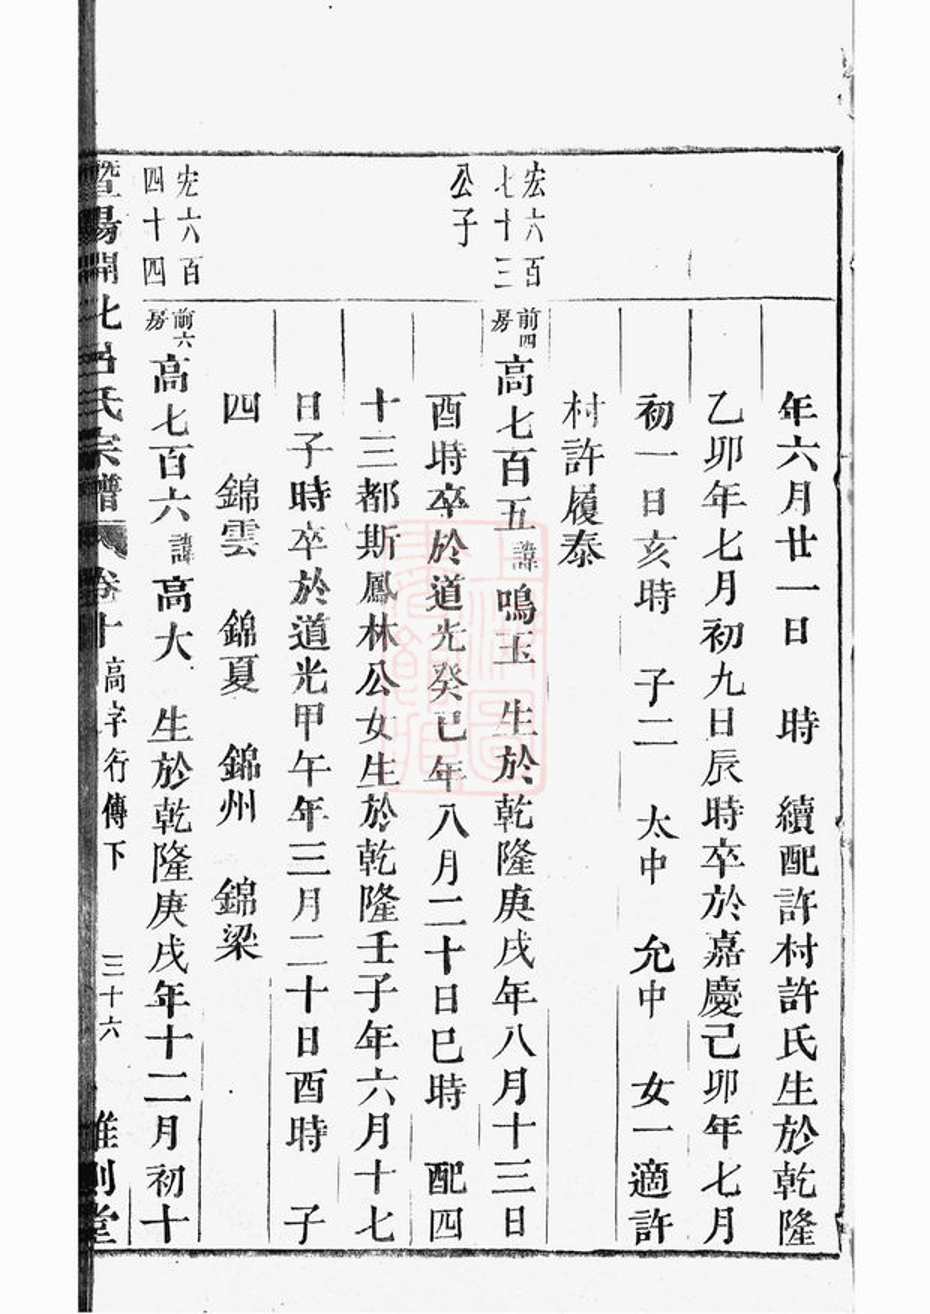 年六月廿一日　時　續配許村許氏生於乾隆
乙卯年七月初九日辰時卒於嘉慶己卯年七月
初一日亥時　子二　太中　允中　女一適許
村許履泰
宏六百
七十三
公子
前四
房
高七百五諱鳴玉　生於乾隆庚戌年八月十三日
酉時卒於道光癸巳年八月二十日巳時　配四
十三都斯鳳林公女生於乾隆壬子年六月十七
日子時卒於道光甲午年三月二十日酉時　子
四　錦雲　錦夏　錦州　錦梁
宏六百
四十四
前六
房
高七百六諱高大　生於乾隆庚戌年十二月初十
暨陽開化呂氏宗譜　卷十　高字行傳下　三十六　惟則堂